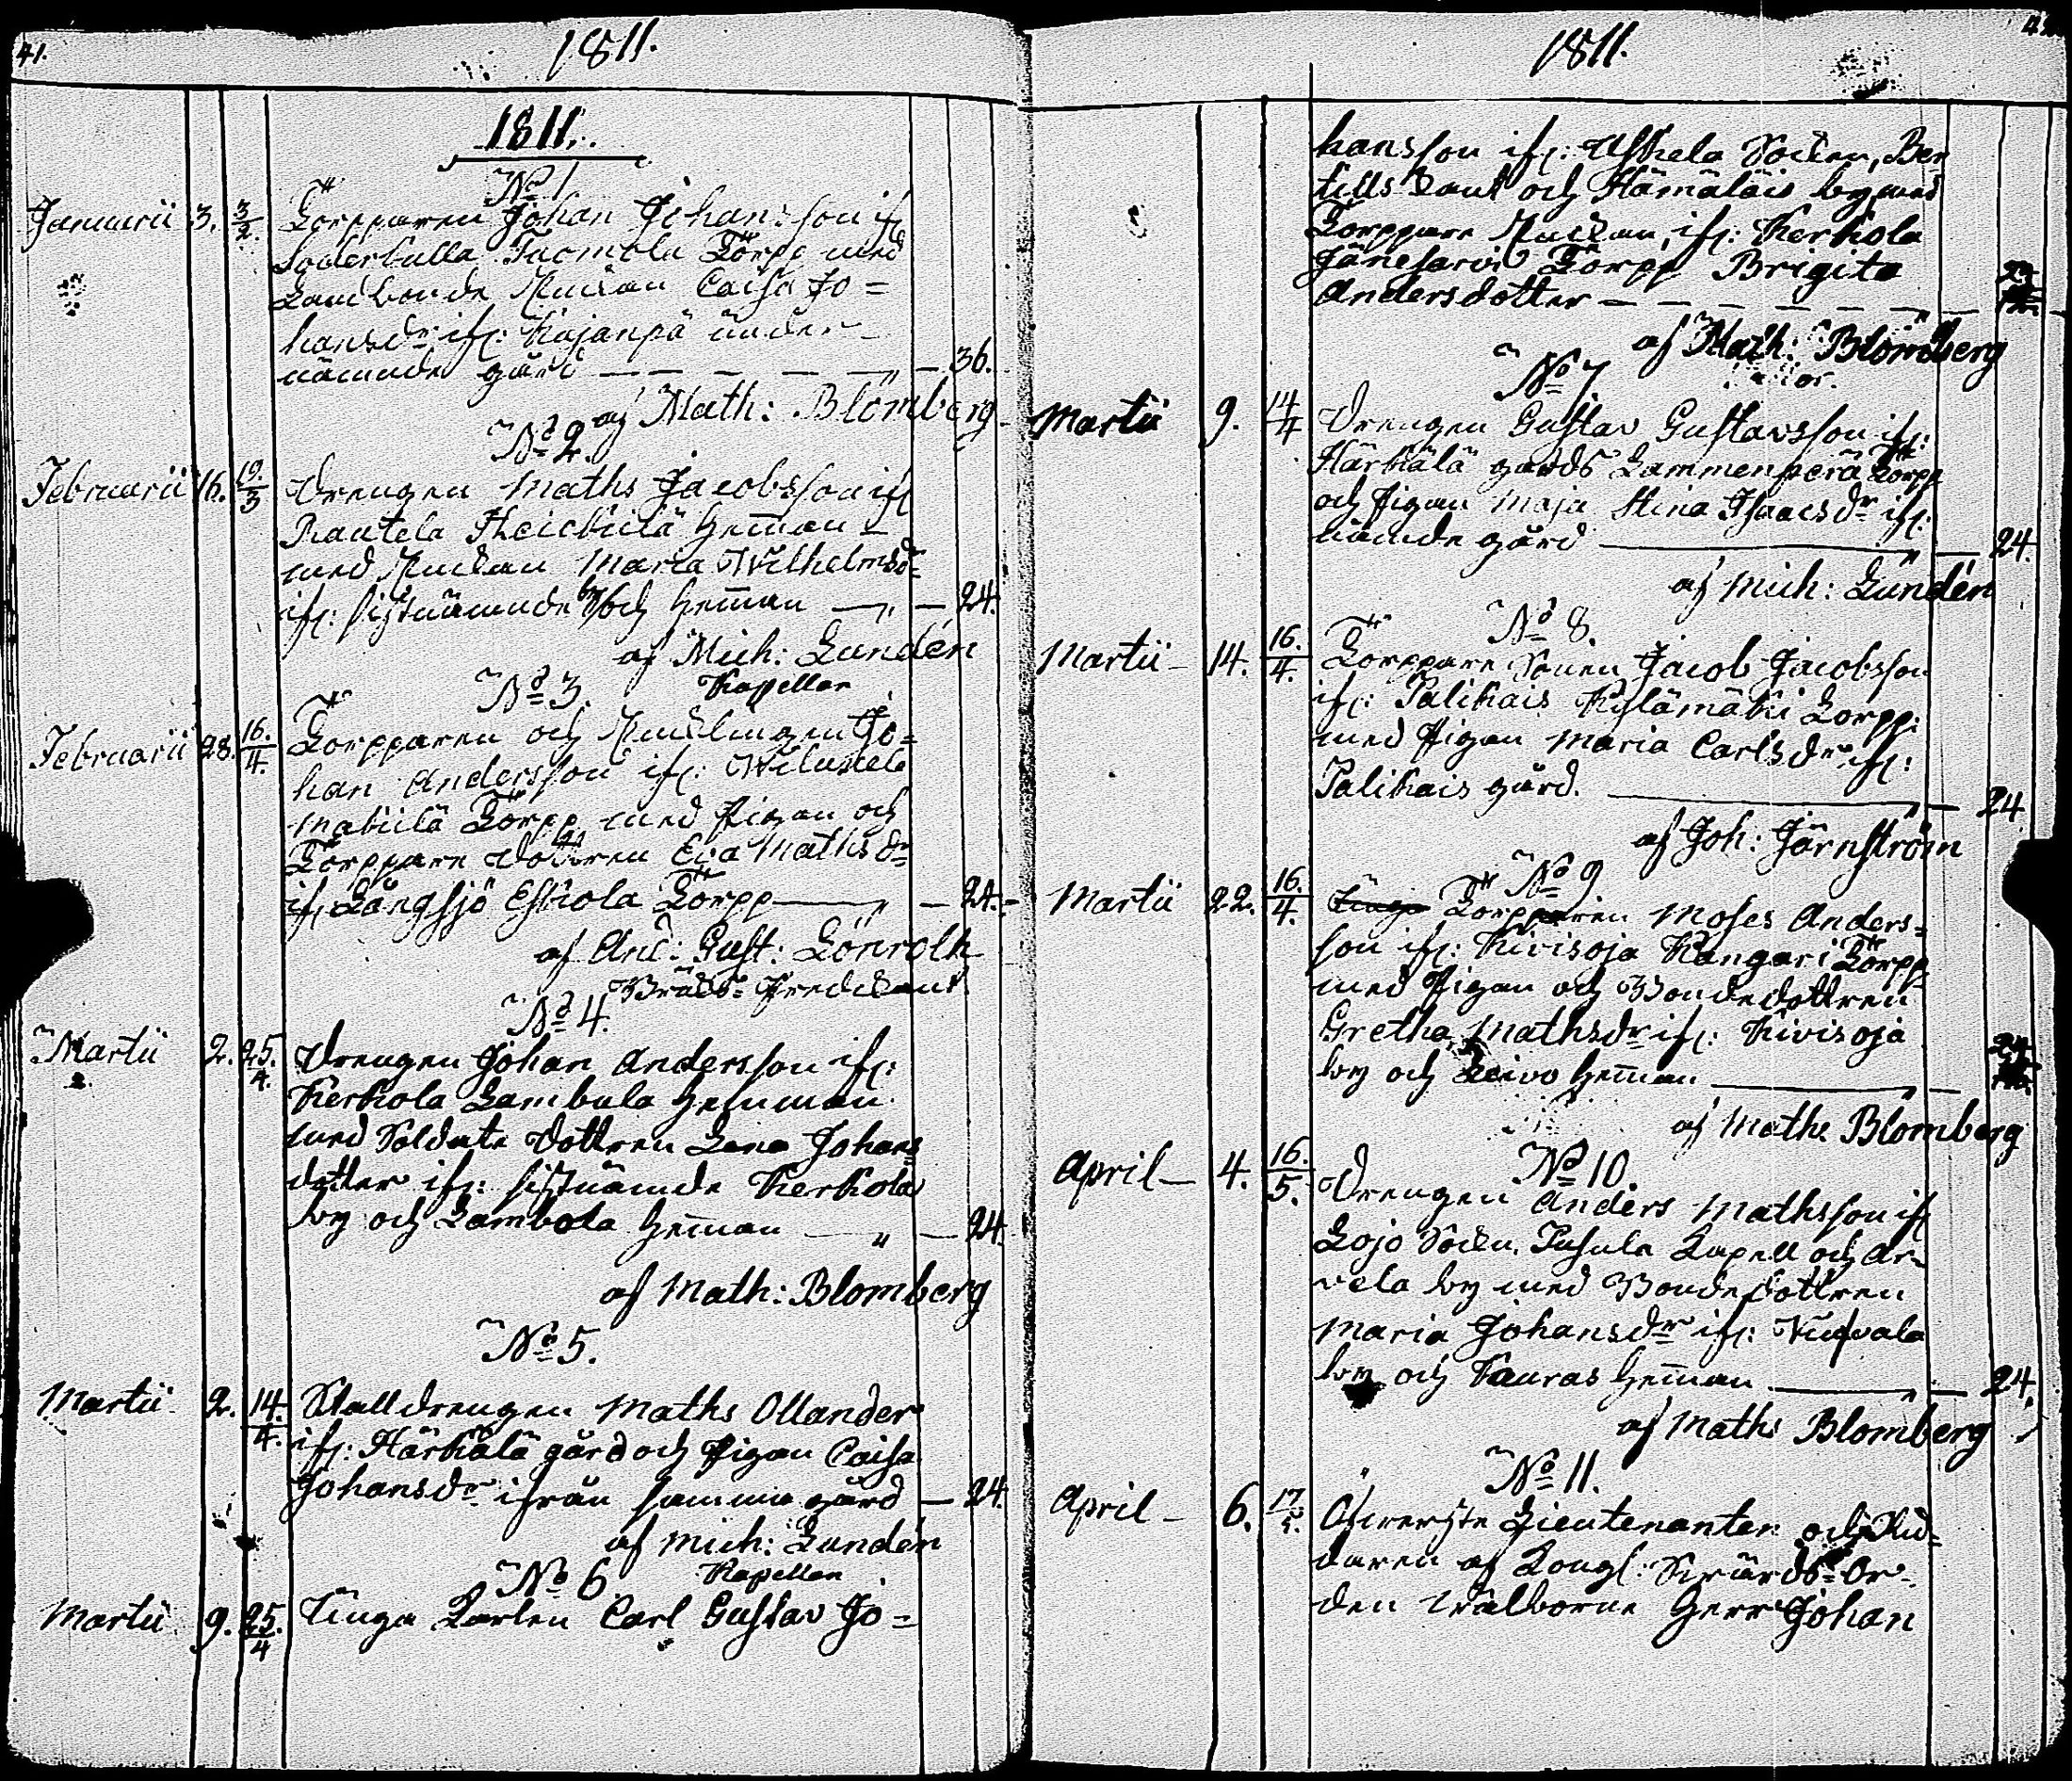 41.
1811.
1811.
No 1
Januarii 3. 3/2. Torpparen Johan Johansson ifr
Söderkulla Tuomola Torpp med
Landbonde Enkan Caisa Jo=
hansdr ifr: Kajanpä under
nämnde gård — — — — — " — 36.
af Math: Blomberg
No 2.
Februarii 16. 19./3 Drengen Maths Jacobsson ifr
Rautela Heickilä Hemman
med Enkan Maria Wilhelmsdr
ifr: sistnämnde by och Hemman — " — 24.
af Mich: Lundén
Kapellan
No 3.
Februarii 28. 16./4. Torpparen och Enklingen Jo=
han Andersson ifr:
Mattila Torpp med Pigan och
Torppare Dottren Eva Mathsdr
ifr Långsjö Eskola Torpp — " — 24.
af And: Gust: Lönroth
Bruks-Predikant
No 4.
Martii 2. 25./4. Drengen Johan Andersson ifr:
Kerkola Lambola Hemman
med Soldate Dottren Lena Johans
dotter ifr: sistnämde Kerkola
by och Lambola Hemman — " — 24.
af Math: Blomberg
No 5.
Martii 2. 14./4. Stalldrengen Maths Ollander
ifr: Härkälä gård och Pigan Caisa
Johansdr ifrån samma gård — 24.
af Mich: Lundén
Kapellan
No 6
Martii 9. 25./4 Unga Karlen Carl Gustav Jo=
1811.
hansson ifr: Uskela Socken, Ber
tills och Hämäläis by med
Torppare Enkan, ifr: Kerkola
Jänesarvi Torpp Brigita
Andersdotter — — — — — — " — 24
af Math: Blomberg
No 7
Martii 9. 14/4 Drengen Gustav Gustavsson ifr:
Härkälä gårds Lammenperä Torpp
och Pigan Maja Stina Isaacsdr ifr:
nämde gård — " — 24.
af Mich: Lundén
No 8.
Martii 14. 16./4. Torppare Sonen Jacob Jacobsson
ifr: Palikais Kylämäki Torpp:
med Pigan Maria Carlsdr ifr:
Palikais gård. — " — 24
af Joh: Järnström
No 9
Martii 22. 16./4. Torpparen Moses Anders=
son ifr: Kivisoja Kangari Torpp
med Pigan och Bondedottren
Gretha Mathsdr ifr: Kivisoja
by och Leivo Hemman — " — 24
af Maths Blomberg
No 10.
April — 4. 16./5. Drengen Anders Mathsson ifr
Lojo Socken, Pusula Kapell och Ar=
vela by med Bondedottren
Maria Johansdr ifr: Viuvala
by och Sauras Hemman — " — 24.
af Maths Blomberg
No 11.
April — 6. 17./5. Öfverste Lieutenanten och Rid=
daren af Kongl: Svärds-Or=
den Välborne Herr Johan